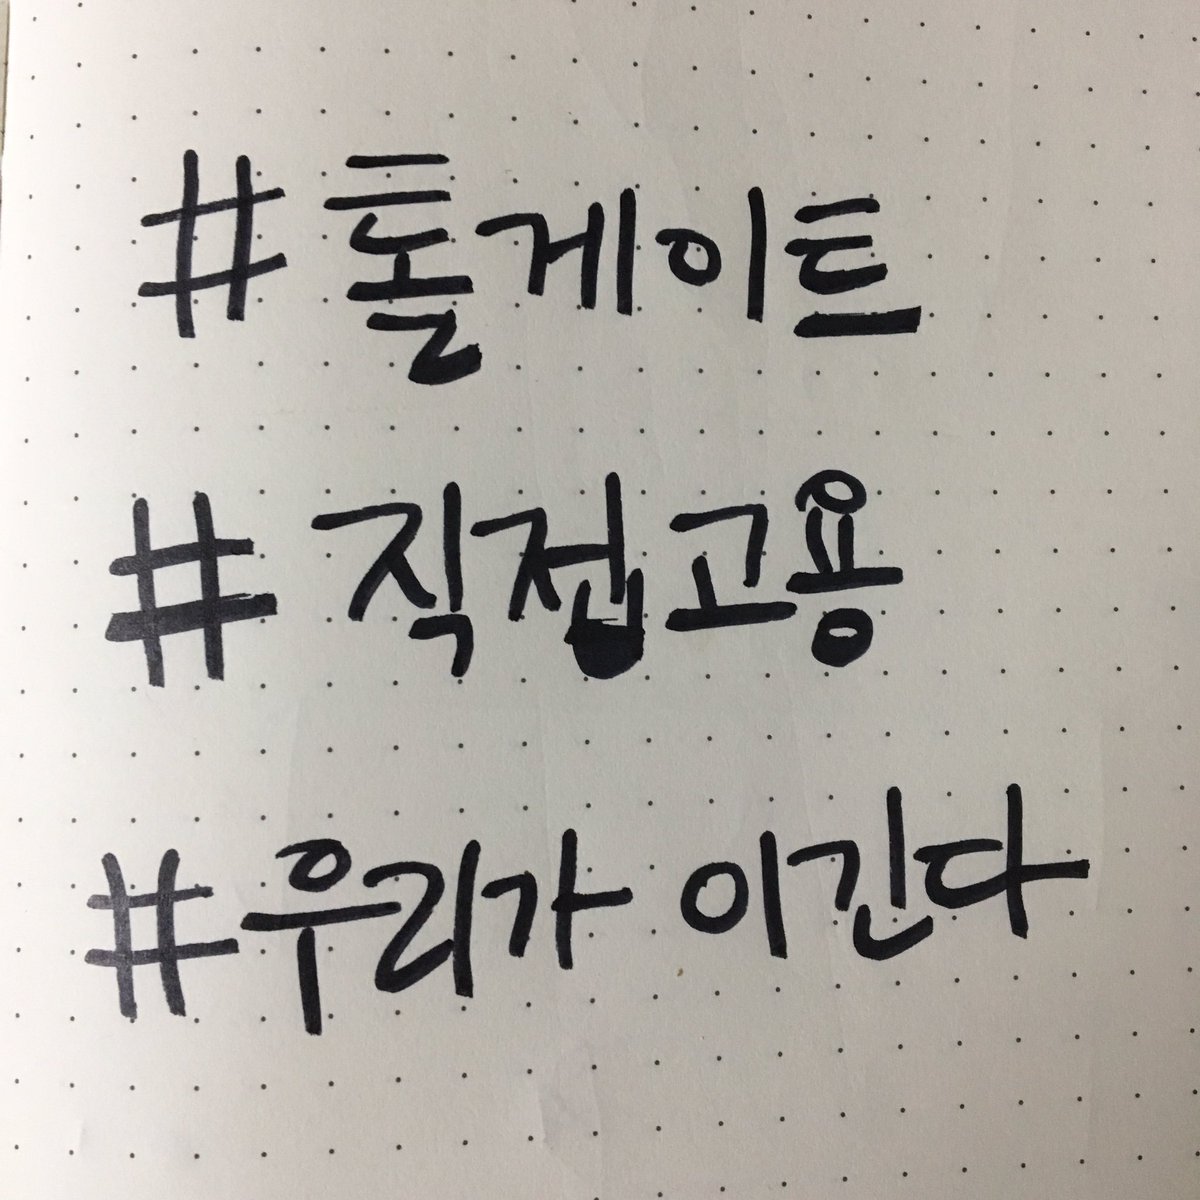 #톨게이트
#직접고용
#우리가 이긴다